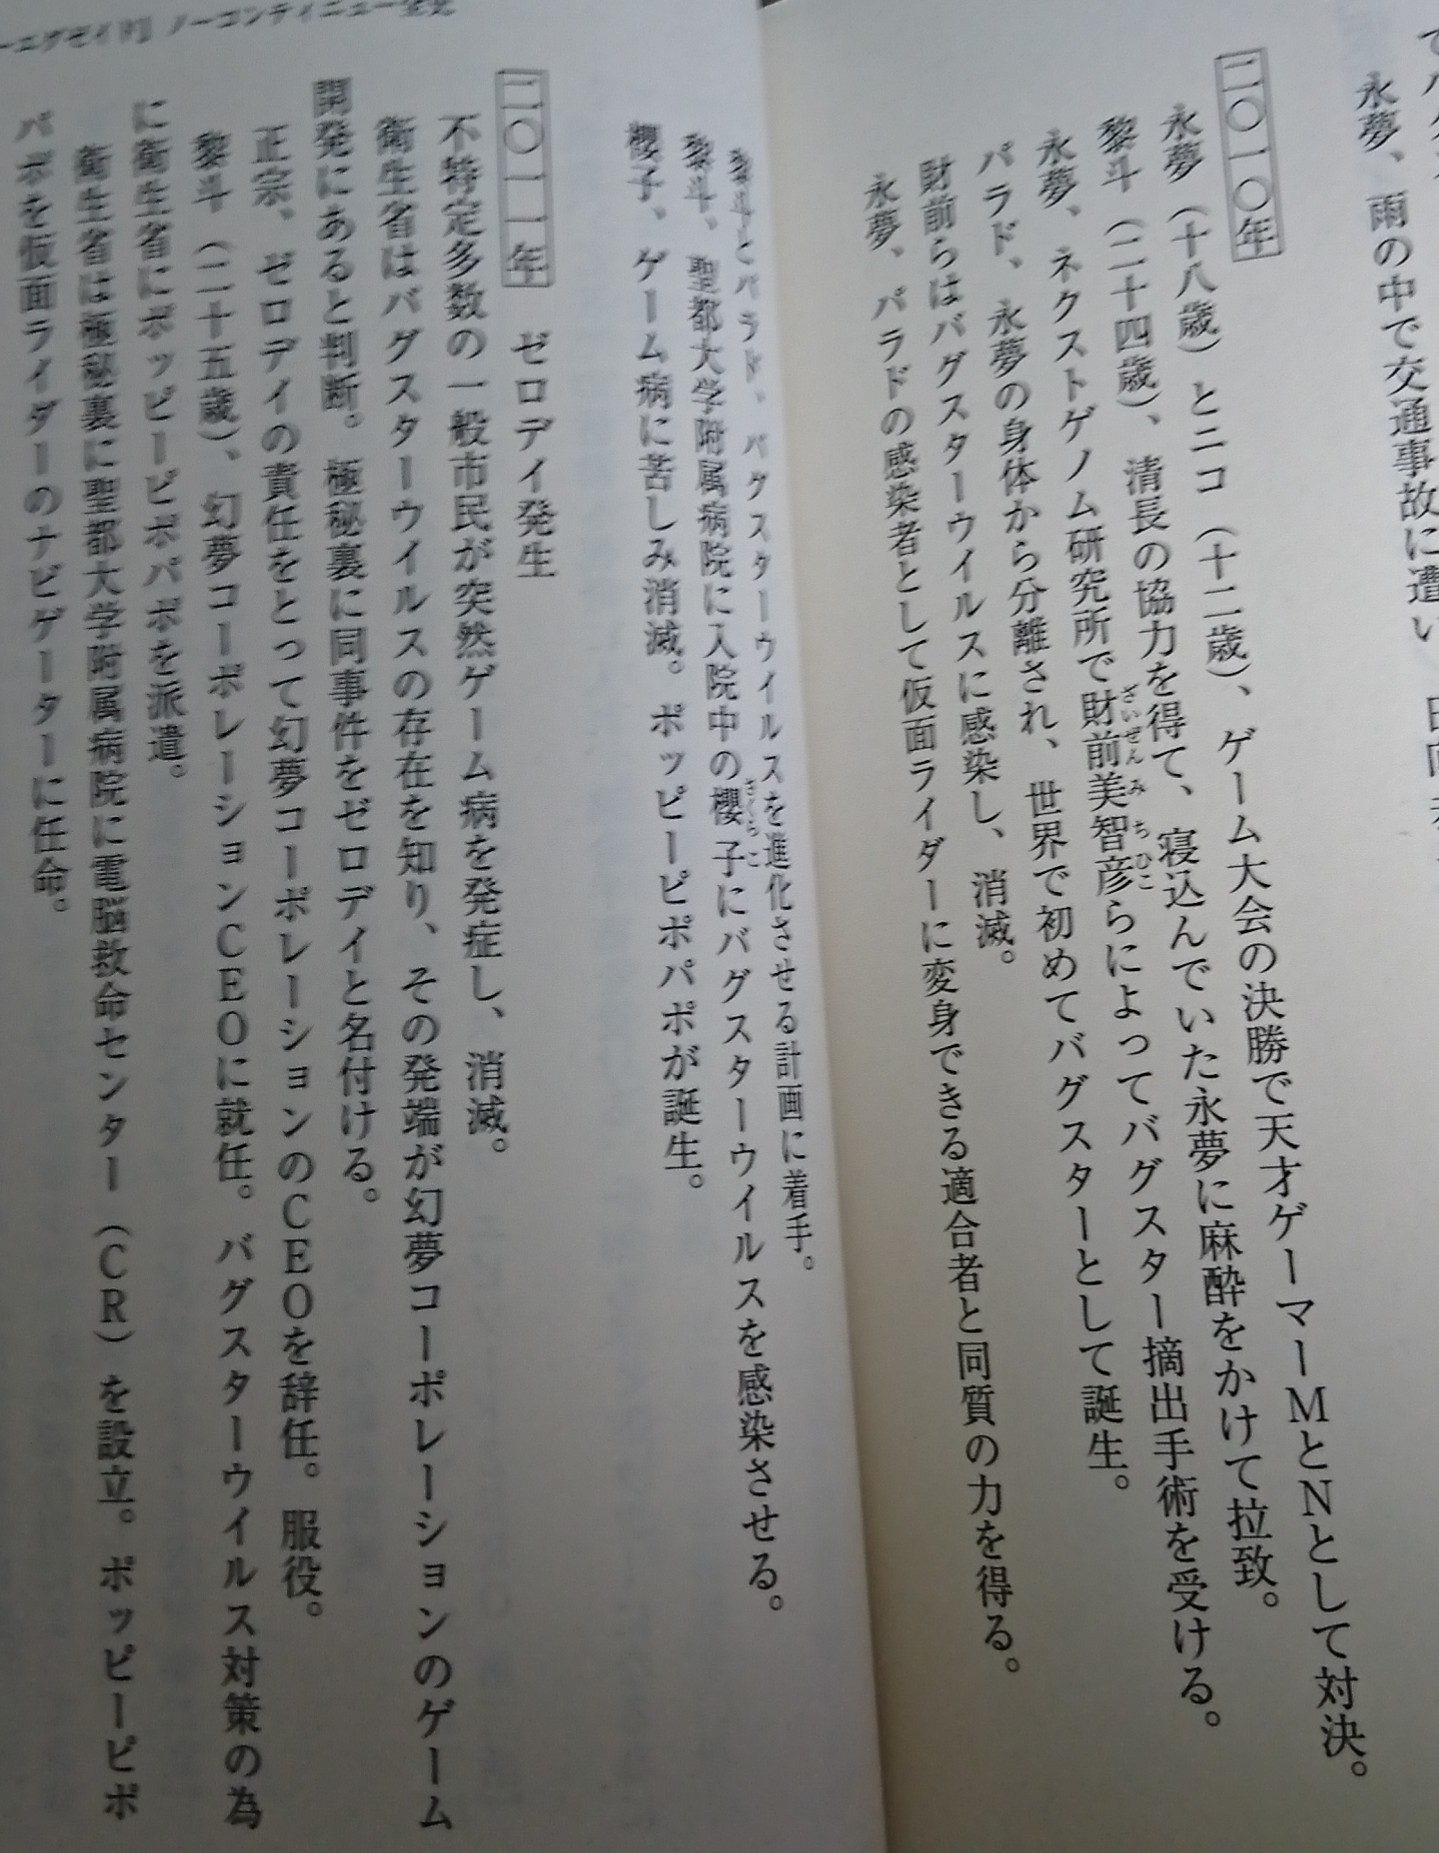 永夢、雨の中で交通事故に遭い、
二〇一〇年
永夢（十八歳）とニコ（十二歳）、ゲーム大会の決勝で天才ゲーマーＭとＮとして対決。
黎斗（二十四歳）、清長の協力を得て、寝込んでいた永夢に麻酔をかけて拉致。
永夢、ネクストゲノム研究所で財前美智彦らによってバグスター摘出手術を受ける。
パラド、永夢の身体から分離され、世界で初めてバグスターとして誕生。
財前らはバグスターウイルスに感染し、消滅。
永夢、パラドの感染者として仮面ライダーに変身できる適合者と同質の力を得る。
黎斗とパラド、バグスターウイルスを進化させる計画に着手。
黎斗、聖都大学附属病院に入院中の櫻子にバグスターウイルスを感染させる。
櫻子、ゲーム病に苦しみ消滅。ポッピーピポパポが誕生。
二〇一一年　ゼロデイ発生
不特定多数の一般市民が突然ゲーム病を発症し、消滅。
衛生省はバグスターウイルスの存在を知り、その発端が幻夢コーポレーションのゲーム
開発にあると判断。極秘裏に同事件をゼロデイと名付ける。
正宗、ゼロデイの責任をとって幻夢コーポレーションのＣＥＯを辞任。服役。
黎斗（二十五歳）、幻夢コーポレーションＣＥＯに就任。バグスターウイルス対策の為
に衛生省にポッピーピポパポを派遣。
衛生省は極秘裏に聖都大学附属病院に電脳救命センター（ＣＲ）を設立。ポッピーピポ
パポを仮面ライダーのナビゲーターに任命。
エグゼイド』ノーコンティニュー全史